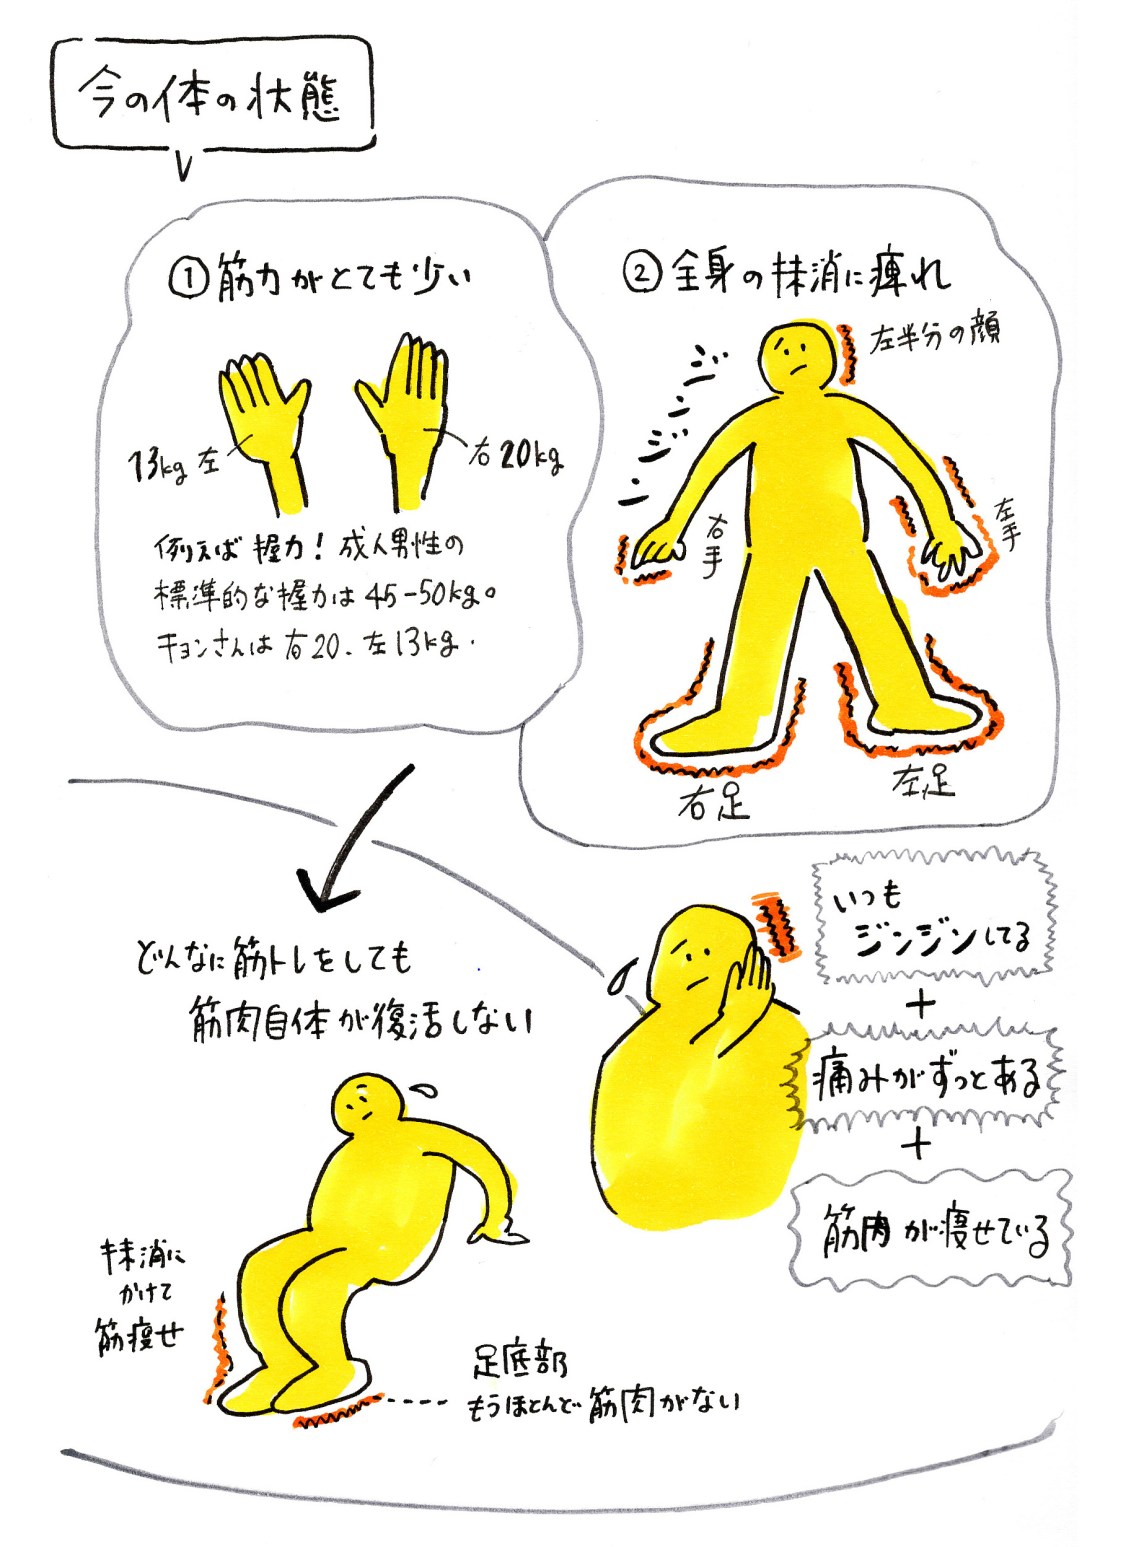 今の体の状態
①筋力がとても少い
13kg 左
右 20kg
例えば 握力! 成人男性の
標準的な握力は 45-50kg。
キョンさんは 右20、左13kg.
②全身の抹消に痺れ
左半分の顔
ジ
ン
ジ
ン
右手
左手
右足
左足
どんなに筋トレをしても
筋肉自体が復活しない
いつも
ジンジンしてる
+
痛みがずっとある
+
筋肉が痩せている
抹消に
かけて
筋痩せ
足底部
もうほとんど筋肉がない